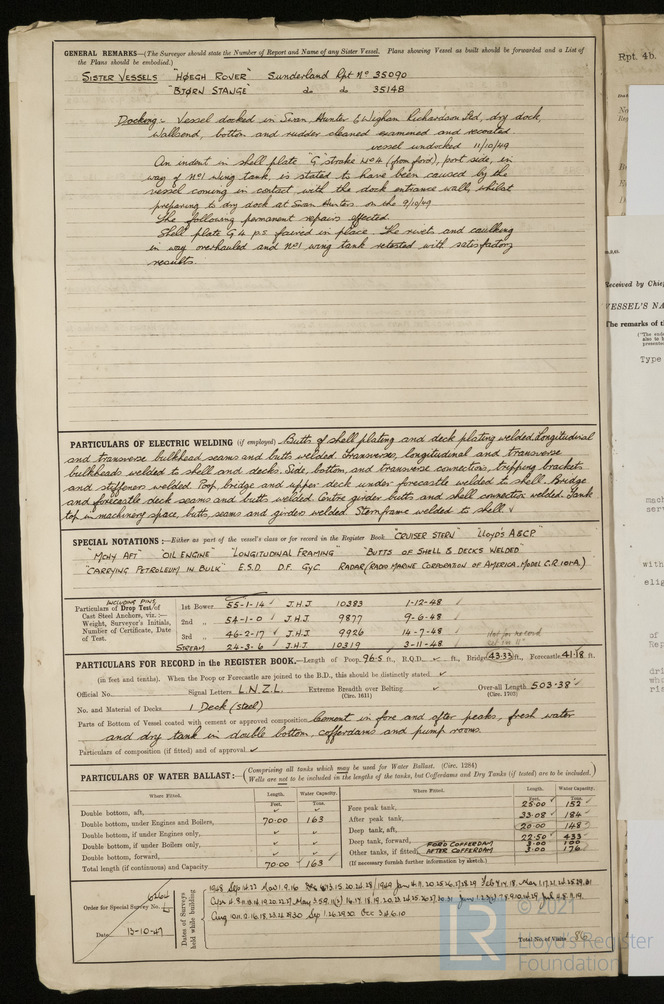 GENERAL REMARKS—(The Surveyor should state the Number of Report and Name of any Sister Vessel. Plans showing Vessel as built should be forwarded and a List of
the Plans should be embodied.)
SISTER VESSELS "HØEGH ROVER" Sunderland Rpt No 35090
"BJØRN STANGE" do do 35148
Docking:- Vessel docked in Swan, Hunter & Wigham Richardson Ltd, dry dock,
Wallsend, bottom and rudder cleaned examined and recoated.
vessel undocked 11/10/49
An indent in shell plate "G" strake No 4 (from ford), port side, in
way of No 1 wing tank, is stated to have been caused by the
vessel coming in contact with the dock entrance wall, whilst
preparing to dry dock at Swan Hunters on the 9/10/49
The following permanent repairs effected.
Shell plate G4 p.s faired in place. The rivets and caulking
in way overhauled and No 1 wing tank retested with satisfactory
results.
PARTICULARS OF ELECTRIC WELDING (if employed) Butts of shell plating and deck plating welded. Longitudinal
and transverse bulkhead seams and butts welded. Transverses, longitudinal and transverse
bulkheads welded to shell and decks. Side, bottom, and transverse connections, tripping brackets
and stiffeners welded. Poop, bridge and upper deck under forecastle welded to shell. Bridge
and forecastle deck seams and butts welded. Centre girder butts and shell connection welded. Tank
top in machinery space, butts, seams and girders welded. Sternframe welded to shell ✓
SPECIAL NOTATIONS:—Either as part of the vessel's class or for record in the Register Book "CRUISER STERN" "LLOYD'S A&CP"
"MCHY AFT" "OIL ENGINE" "LONGITUDINAL FRAMING" "BUTTS OF SHELL & DECKS WELDED"
"CARRYING PETROLEUM IN BULK" E.S.D D.F. GyC RADAR (RADIO MARINE CORPORATION OF AMERICA. MODEL C.R.101-A.)
INCLUDING PINS
Particulars of Drop Test of
Cast Steel Anchors, viz.:—
Weight, Surveyor's Initials,
Number of Certificate, Date
of Test.
1st Bower 55-1-14 ✓ J.H.J 10383 1-12-48
2nd " 54-1-0 ✓ J.H.J 9877 9-6-48
3rd " 46-2-17 ✓ J.H.J 9926 14-7-48
STREAM 24-3-6 ✓ J.H.J 10319 3-11-48
PARTICULARS FOR RECORD in the REGISTER BOOK.—Length of Poop 96.5 ft., R.Q.D. ✓ ft., Bridge 43.33 ft., Forecastle 41.18 ft.
(in feet and tenths). When the Poop or Forecastle are joined to the B.D., this should be distinctly stated ✓
Official No. Signal Letters L.N.Z.L. Extreme Breadth over Belting ✓ Over-all Length 503.38 ✓
(Circ. 1611) (Circ. 1703)
No. and Material of Decks 1 Deck (steel)
Parts of Bottom of Vessel coated with cement or approved composition Cement in fore and after peaks, fresh water
and dry tank in double bottom, cofferdams and pump rooms.
Particulars of composition (if fitted) and of approval ✓
PARTICULARS OF WATER BALLAST:— (Comprising all tanks which may be used for Water Ballast. (Circ. 1284)
Wells are not to be included in the lengths of the tanks, but Cofferdams and Dry Tanks (if tested) are to be included.)
Where Fitted. Length. Water Capacity. Where Fitted. Length. Water Capacity.
Feet. Tons. Feet. Tons.
Double bottom, aft, ✓ ✓
Double bottom, under Engines and Boilers, 70.00 163
Double bottom, if under Engines only, ✓ ✓
Double bottom, if under Boilers only, ✓ ✓
Double bottom, forward, ✓ ✓
Total length (if continuous) and Capacity 70.00 163
Fore peak tank, 25.00 152
After peak tank, 33.08 184
Deep tank, aft, 20.00 148
Deep tank, forward, 22.50 433
FORD COFFERDAM 3.00
Other tanks, if fitted, AFTER COFFERDAM 3.00 176
(If necessary furnish further information by sketch.)
Order for Special Survey No.
Date 13-10-47
Dates of Surveys held while building
Total No. of Visits 86
Rpt. 4b.
Received by Chief
VESSEL'S NA
The remarks of t
Type
with
elig
of
© 2021
Lloyd's Register
Foundation
LR